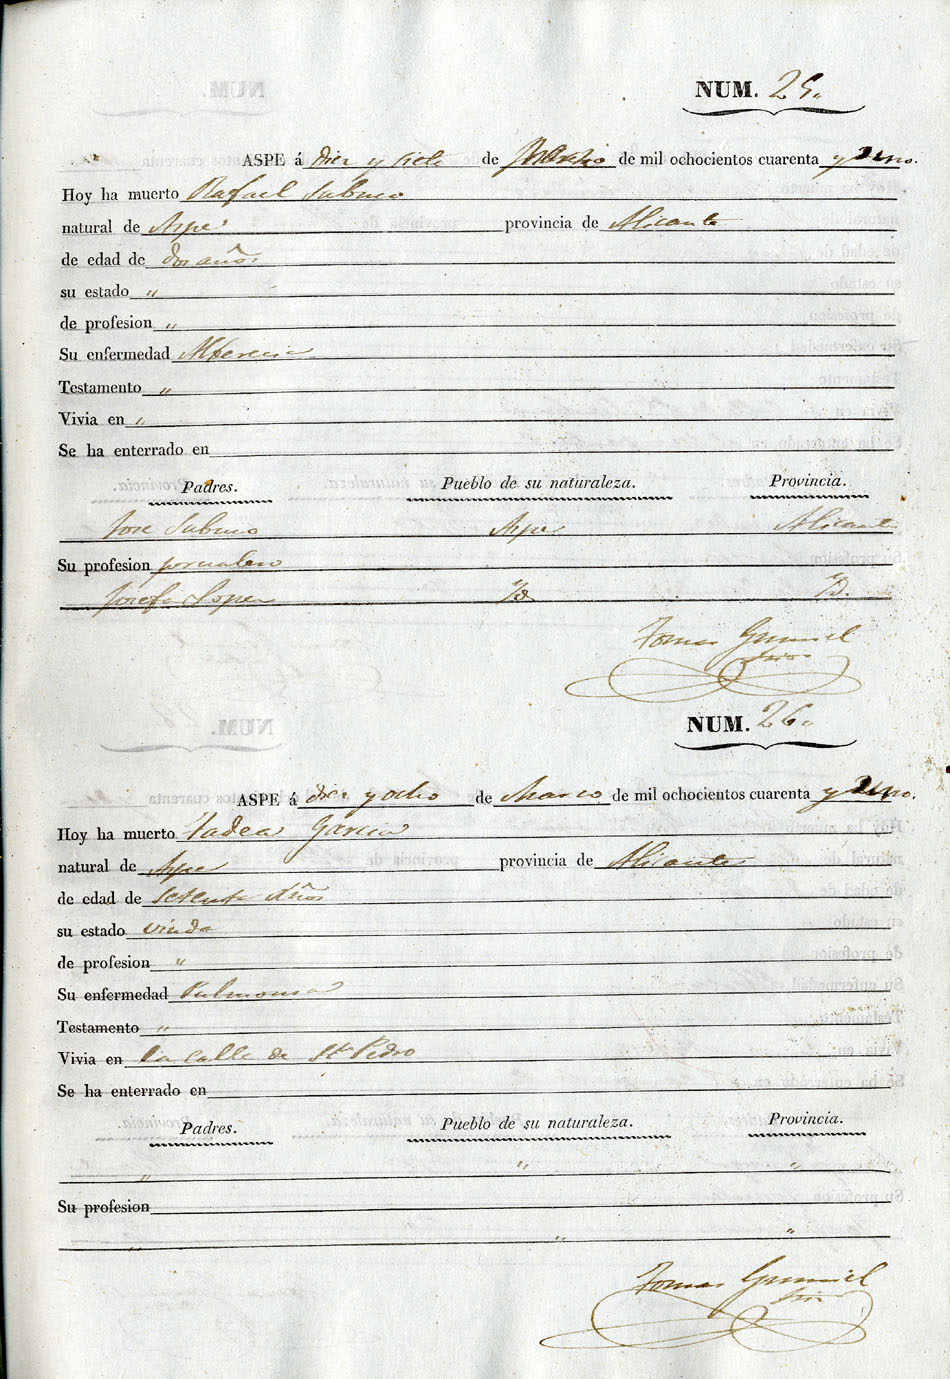 NUM. 25.
ASPE á diez y siete de Marzo de mil ochocientos cuarenta y Uno.
Hoy ha muerto Rafael
natural de Aspe provincia de Alicante
de edad de dos años
su estado "
de profesion "
Su enfermedad Alferecia
Testamento "
Vivia en "
Se ha enterrado en
Padres. Pueblo de su naturaleza. Provincia.
Jose Aspe Alicante
Su profesion jornalero
Josefa Lopez Yd Yd.
Tomas
NUM. 26.
ASPE á diez y ocho de Marzo de mil ochocientos cuarenta y Uno.
Hoy ha muerto Tadea Garcia
natural de Aspe provincia de Alicante
de edad de setenta años
su estado viuda
de profesion "
Su enfermedad Pulmonia
Testamento "
Vivia en la calle de Sn Pedro
Se ha enterrado en
Padres. Pueblo de su naturaleza. Provincia.
" " "
Su profesion
" " "
Tomas